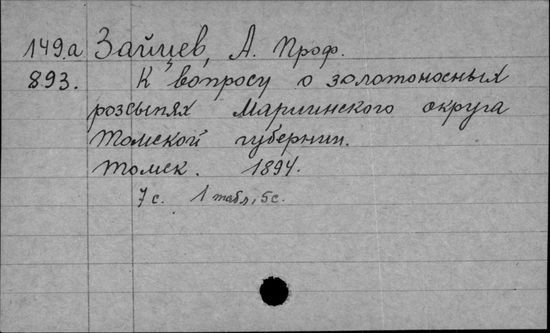 149.а Зайцев, А. Проф.
893. К вопросу о золотоносных
розсыпях Мариинского округа
Томской губернии.
Томск. 1894.
7 с. 1 табл, 5с.